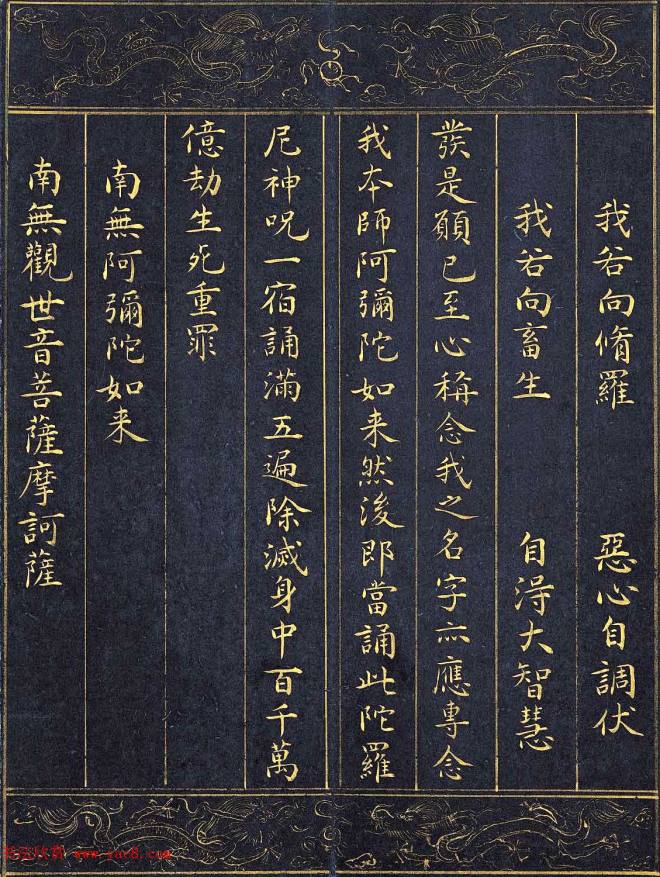 我若向脩羅　惡心自調伏
我若向畜生　自淂大智慧
發是願已至心稱念我之名字亦應專念
我本師阿彌陀如来然後即當誦此陀羅
尼神呪一宿誦滿五遍除滅身中百千萬
億劫生死重罪
南無阿彌陀如来
南無觀世音菩薩摩訶薩
www.yac8.com